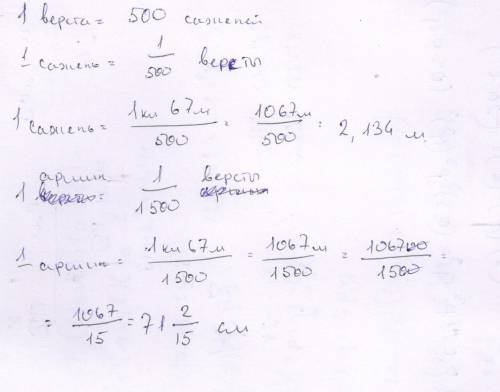 1 верста = 500 саженей
1 сажень = 1/500 версты
1 сажень = 1км 67м/500 = 1067м/500 = 2,134 м.
1 аршин = 1/1500 версты
1 аршин = 1км 67м/1500 = 1067м/1500 = 106700/1500 =
= 1067/15 = 71 2/15 см